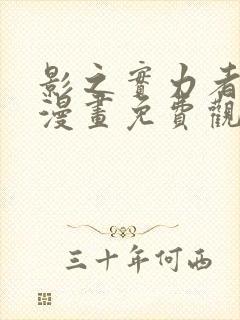 影之實力者
漫畫免費觀
三十年何西